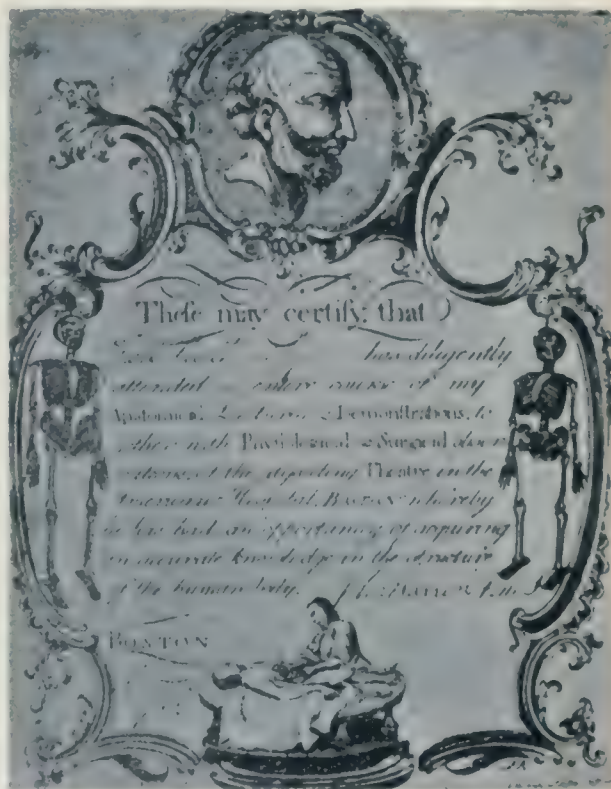 These may certify, that
has diligently
attended entire course of my
Anatomical Lectures & Demonstrations, to
gether with Physiological & Surgical
at the dissecting Theatre in the
American Hospital, Boston whereby
he has had an opportunity of acquiring
an accurate knowledge in the structure
of the human body.
BOSTON